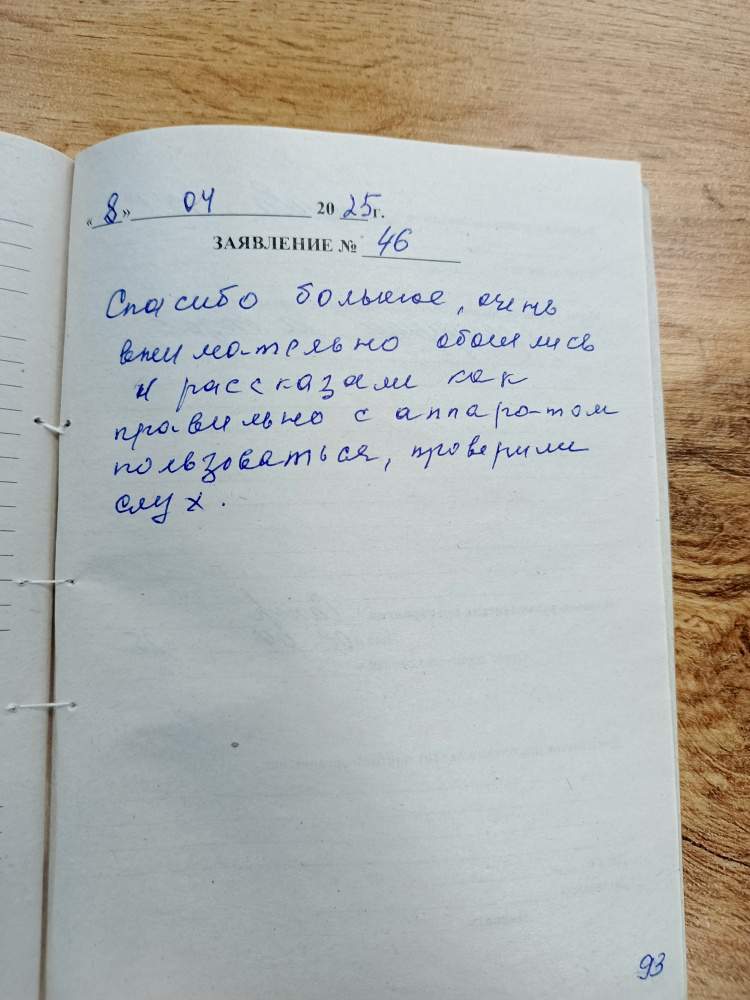 «8» 04 2025г.
ЗАЯВЛЕНИЕ № 46
Спасибо большое, очень
внимательно обошлись
и рассказали как
правильно с аппаратом
пользоваться, проверили
слух.
93